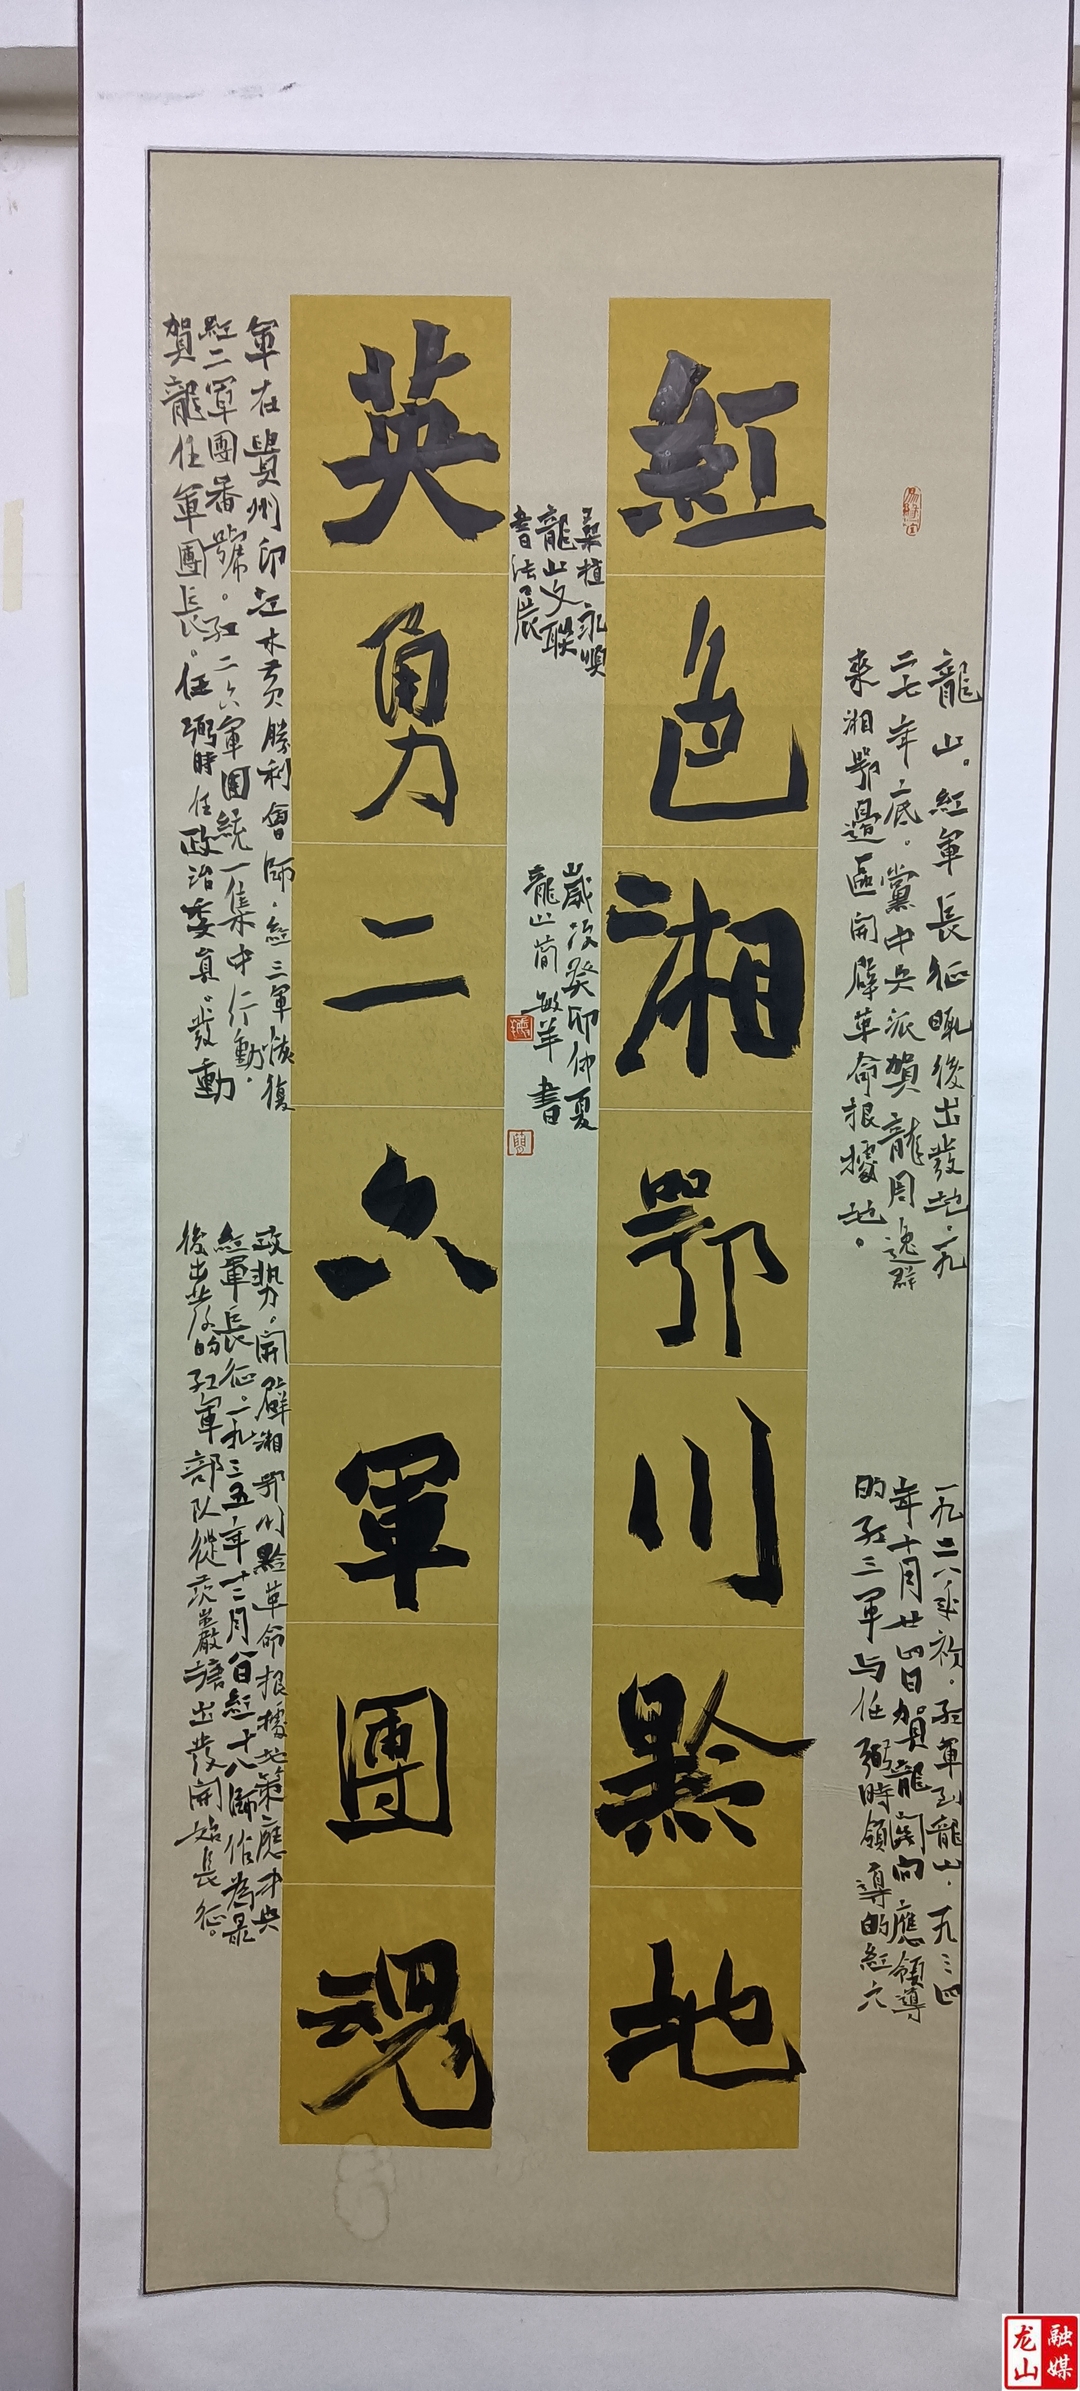 紅色湘鄂川黔地
英勇二六軍團魂
龍山。紅軍長征最後出發地。一九
二七年底。黨中央派賀龍周逸群
來湘鄂邊區開辟革命根據地。
一九二八年初。紅軍到龍山。一九三四
年十月廿四日賀龍關向應領導
的紅三軍与任弼時領導的紅六
桑植永順
龍山文聯
書法展
歲次癸卯仲夏
龍山簡敏羊書
軍在貴州印江木黄勝利會師。紅三軍恢復
紅二軍團番號。紅二六軍團統一集中行動。
賀龍任軍團長。任弼時任政治委員。發動
政勢。開辟湘鄂川黔革命根據地策應中央
紅軍長征。一九三五年十二月 紅十八師作為最
後出發的紅軍部队從茨巖塘出發開始長征。
龙山
融媒